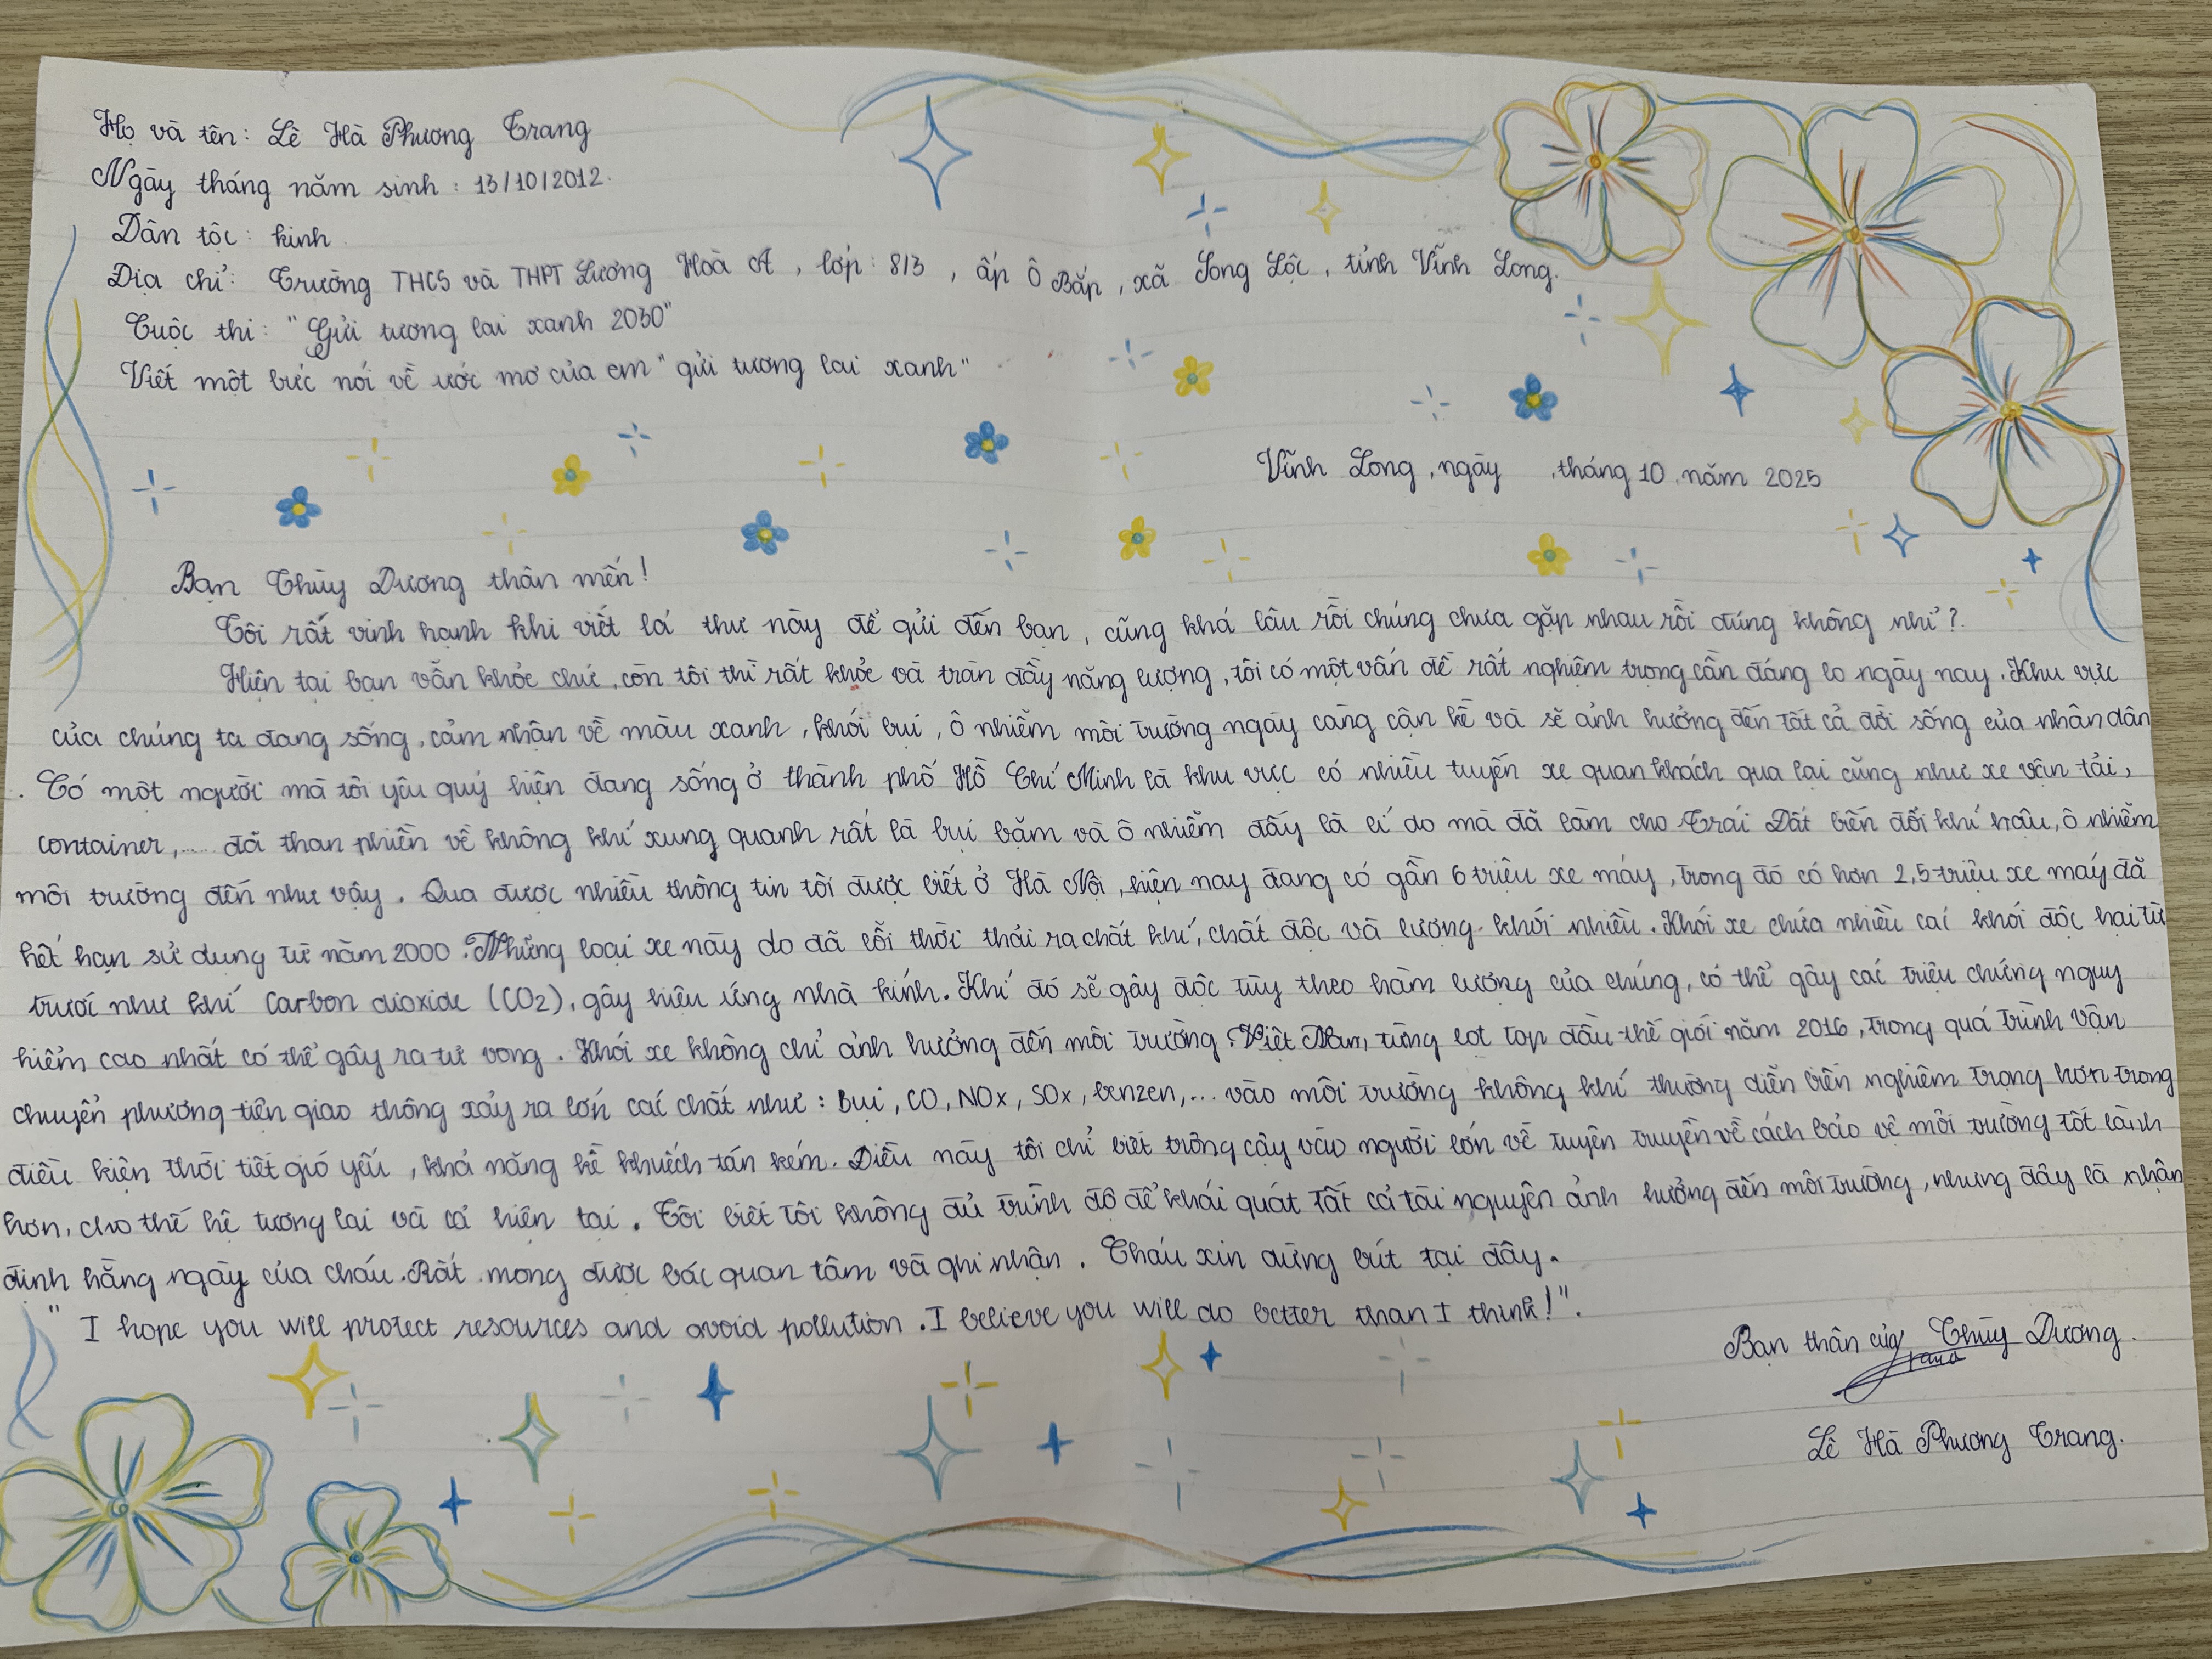 Họ và tên: Lê Hà Phương Trang
Ngày tháng năm sinh: 13/10/2012.
Dân tộc: kinh.
Địa chỉ: Trường THCS và THPT Lương Hoà A, lớp: 8/3, ấp Ô Bắp, xã Song Lộc, tỉnh Vĩnh Long.
Cuộc thi: "Gửi tương lai xanh 2030"
Viết một bức nói về ước mơ của em "gửi tương lai xanh"
Vĩnh Long, ngày , tháng 10 năm 2025
Bạn Thùy Dương thân mến!
Tôi rất vinh hạnh khi viết lá thư này để gửi đến bạn, cũng khá lâu rồi chúng chưa gặp nhau rồi đúng không nhỉ?.
Hiện tại bạn vẫn khỏe chứ, còn tôi thì rất khỏe và tràn đầy năng lượng, tôi có một vấn đề rất nghiêm trọng cần đáng lo ngày nay. Khu vực
của chúng ta đang sống, cảm nhận về màu xanh, khói bụi, ô nhiễm môi trường ngày càng cận kề và sẽ ảnh hưởng đến tất cả đời sống của nhân dân
. Có một người mà tôi yêu quý hiện đang sống ở thành phố Hồ Chí Minh là khu vực có nhiều tuyến xe quan khách qua lại cũng như xe vận tải,
container,... đã than phiền về không khí xung quanh rất là bụi bặm và ô nhiễm đấy là lí do mà đã làm cho Trái Đất biến đổi khí hậu, ô nhiễm
môi trường đến như vậy. Qua được nhiều thông tin tôi được biết ở Hà Nội, hiện nay đang có gần 6 triệu xe máy, trong đó có hơn 2,5 triệu xe máy đã
hết hạn sử dụng từ năm 2000. Những loại xe này do đã lỗi thời thải ra chất khí, chất độc và lượng khói nhiều. Khói xe chứa nhiều các khói độc hại từ
trước như khí Carbon dioxide (CO2), gây hiệu ứng nhà kính. Khí đó sẽ gây độc tùy theo hàm lượng của chúng, có thể gây các triệu chứng nguy
hiểm cao nhất có thể gây ra tử vong. Khói xe không chỉ ảnh hưởng đến môi trường. Việt Nam, từng lọt top đầu thế giới năm 2016, trong quá trình vận
chuyển phương tiện giao thông xảy ra lớn các chất như: Bụi, CO, NOx, SOx, benzen,... vào môi trường không khí thường diễn biến nghiêm trọng hơn trong
điều kiện thời tiết gió yếu, khả năng kề khuếch tán kém. Điều này tôi chỉ biết trông cậy vào người lớn về tuyên truyền về cách bảo vệ môi trường tốt lành
hơn, cho thế hệ tương lai và cả hiện tại. Tôi biết tôi không đủ trình độ để khái quát tất cả tài nguyên ảnh hưởng đến môi trường, nhưng đây là nhận
định hằng ngày của cháu. Rất mong được bác quan tâm và ghi nhận. Cháu xin dừng bút tại đây.
"I hope you will protect resources and avoid pollution. I believe you will do better than I think!".
Bạn thân của Thùy Dương.
Lê Hà Phương Trang.